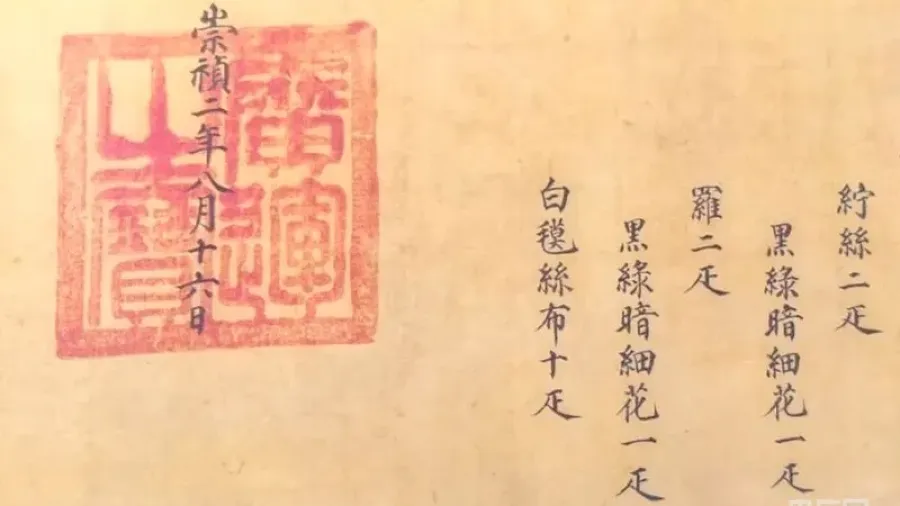 紵絲二疋
黒綠暗細花一疋
羅二疋
黒綠暗細花一疋
白氁絲布十疋
崇禎二年八月十六日
廣運之寶